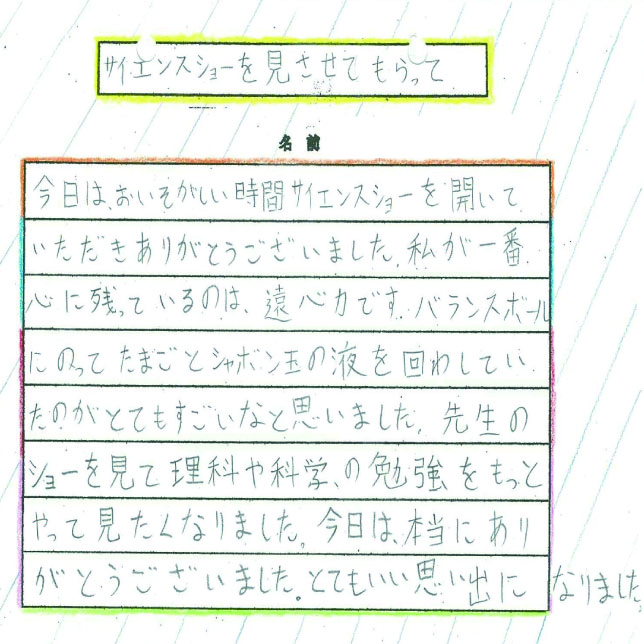 サイエンスショーを見させてもらって
名前
今日は、おいそがしい時間サイエンスショーを開いて
いただきありがとうございました。私が一番
心に残っているのは、遠心力です。バランスボール
にのってたまごとシャボン玉の液を回わしてい
たのがとてもすごいなと思いました。先生の
ショーを見て理科や科学、の勉強をもっと
やって見たくなりました。今日は、本当にあり
がとうございました。とてもいい思い出になりました。